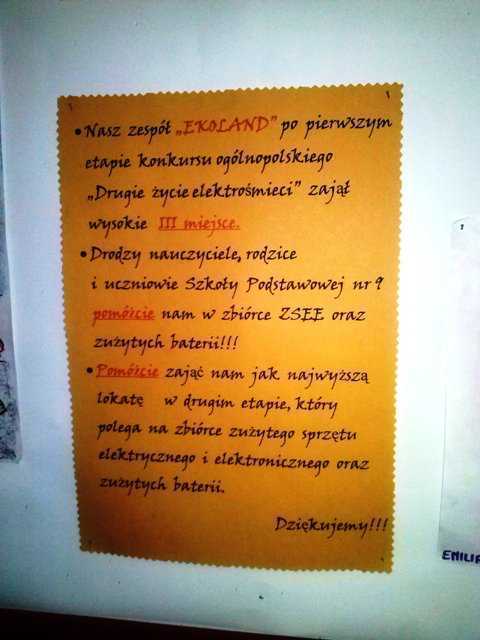 • Nasz zespół „EKOLAND” po pierwszym
etapie konkursu ogólnopolskiego
„Drugie życie elektrośmieci” zajął
wysokie III miejsce.
• Drodzy nauczyciele, rodzice
i uczniowie Szkoły Podstawowej nr 9
pomóżcie nam w zbiórce ZSEE oraz
zużytych baterii!!!
• Pomóżcie zająć nam jak najwyższą
lokatę w drugim etapie, który
polega na zbiórce zużytego sprzętu
elektrycznego i elektronicznego oraz
zużytych baterii.
Dziękujemy!!!
EMILIA